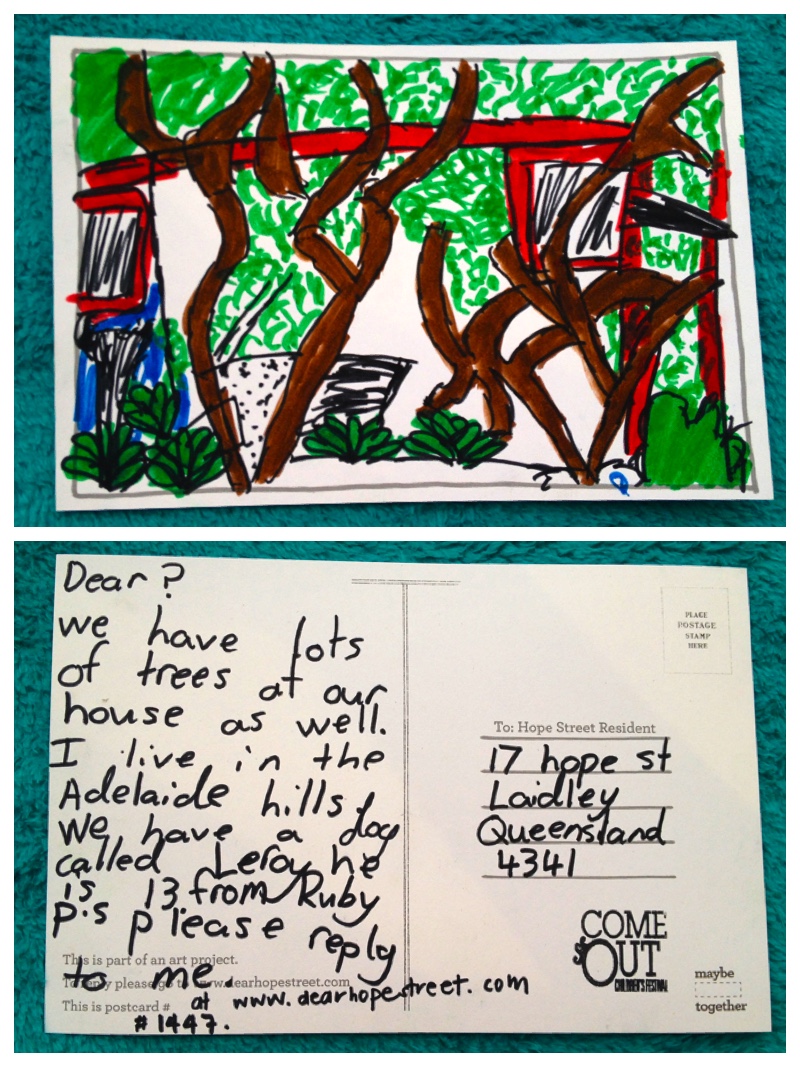 Dear ?
we have lots
of trees at our
house as well.
I live in the
Adelaide hills.
We have a dog
called Leroy he
is 13. from Ruby
p.s please reply
to me.
at www.dearhopestreet.com
#1447.
This is part of an art project.
To reply please go to www.dearhopestreet.com
This is postcard #
PLACE
POSTAGE
STAMP
HERE
To: Hope Street Resident
17 hope st
Laidley
Queensland
4341
COME
OUT
CHILDREN'S FESTIVAL
maybe
together